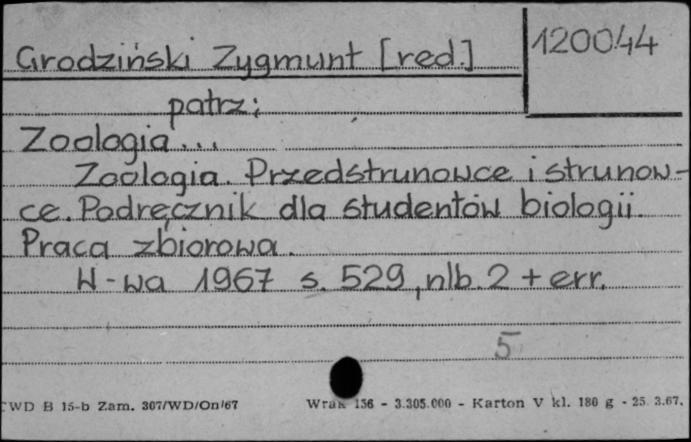 Grodziński Zygmunt [red.]
120044
patrz:
Zoologia...
Zoologia. Przedstrunowce i strunow-
ce. Podręcznik dla studentów biologii.
Praca zbiorowa.
W-wa 1967 s. 529, nlb. 2 + err.
5
CWD B 15-b Zam. 307/WD/On/67 Wrak 156 - 3.305.000 - Karton V kl. 180 g - 25. 3.67.